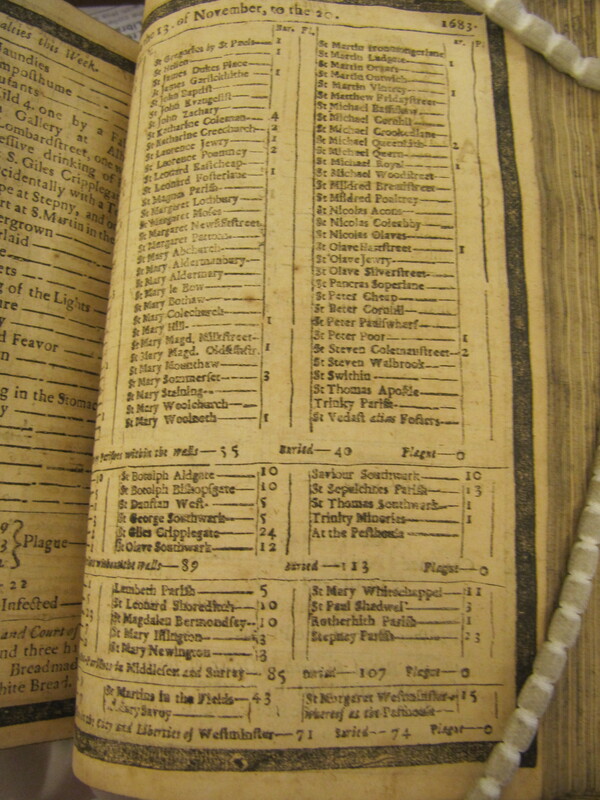 alties this Week.
aundies
mposthume
Gallery at
Lombardstreet, one
essive drinking of
S. Giles Cripplegat
ccidentally with a
pe at Stepny, and
rt at S. Martin in the
ergrown
rlaid
ets
g of the Lights
ure
d Feavor
ng in the Stomac
Plague
Infected
and Court of
and three ha
Breadmad
hite Bread,
13. of November, to the 20. 1683.
Bur. Pl.
St Gregories by St Pauls 1
St Hellen 1
St James Dukes Place 1
St James Garlickhithe 1
St John Baptist
St John Evangelist
St John Zachary
St Katharine Coleman 4
St Katharine Creechurch 2
St Laurence Jewry 1
St Laurence Pountney 2
St Leonard Eastcheap
St Leonard Fosterlane 1
St Magnus Parish
St Margaret Lothbury
St Margaret Moses
St Margaret Newfishstreet
St Margaret Pattons
St Mary Abchurch
St Mary Aldermanbury
St Mary Aldermary
St Mary le Bow
St Mary Bothaw
St Mary Colechurch
St Mary Hill 1
St Mary Magd. Milkstreet
St Mary Magd. Oldfishstr. 1
St Mary Mounthaw
St Mary Sommerset 3
St Mary Staining
St Mary Woolchurch
St Mary Woolnoth 1
St Martin Ironmongerlane
St Martin Ludgate
St Martin Orgars 1
St Martin Outwich
St Martin Vintrey 1
St Matthew Fridaystreet
St Michael Bassishaw
St Michael Cornhil
St Michael Crookedlane
St Michael Queenhith 2
St Michael Quern
St Michael Royal 1
St Michael Woodstreet
St Mildred Breadstreet
St Mildred Poultrey
St Nicolas Acons
St Nicolas Coleabby
St Nicolas Olaves
St Olave Hartstreet 1
St Olave Jewry
St Olave Silverstreet
St Pancras Soperlane
St Peter Cheap
St Peter Cornhil
St Peter Paulswharf
St Peter Poor 1
St Steven Colemanstreet 2
St Steven Walbrook
St Swithin
St Thomas Apostle
Trinity Parish
St Vedast alias Fosters
Parishes within the Walls 35 Buried 40 Plague 0
St Botolph Aldgate 10
St Botolph Bishopsgate 10
St Dunstan West 5
St George Southwark 5
St Giles Cripplegate 24
St Olave Southwark 12
Saviour Southwark 10
St Sepulchres Parish 13
St Thomas Southwark 1
Trinity Minories 1
At the Pesthouse
without the Walls 89 Buried 113 Plague 0
Lambeth Parish 5
St Leonard Shoreditch 10
St Magdalen Bermondsey 10
St Mary Islington 3
St Mary Newington 3
St Mary Whitechappel 11
St Paul Shadwel 3
Rotherhith Parish 1
Stepney Parish 23
Parishes in Middlesex and Surrey 85 Buried 107 Plague 0
St Martins in the Fields 43
St Mary Savoy
St Margaret Westminster 15
Whereof at the Pesthouse
the City and Liberties of Westminster 71 Buried 74 Plague 0